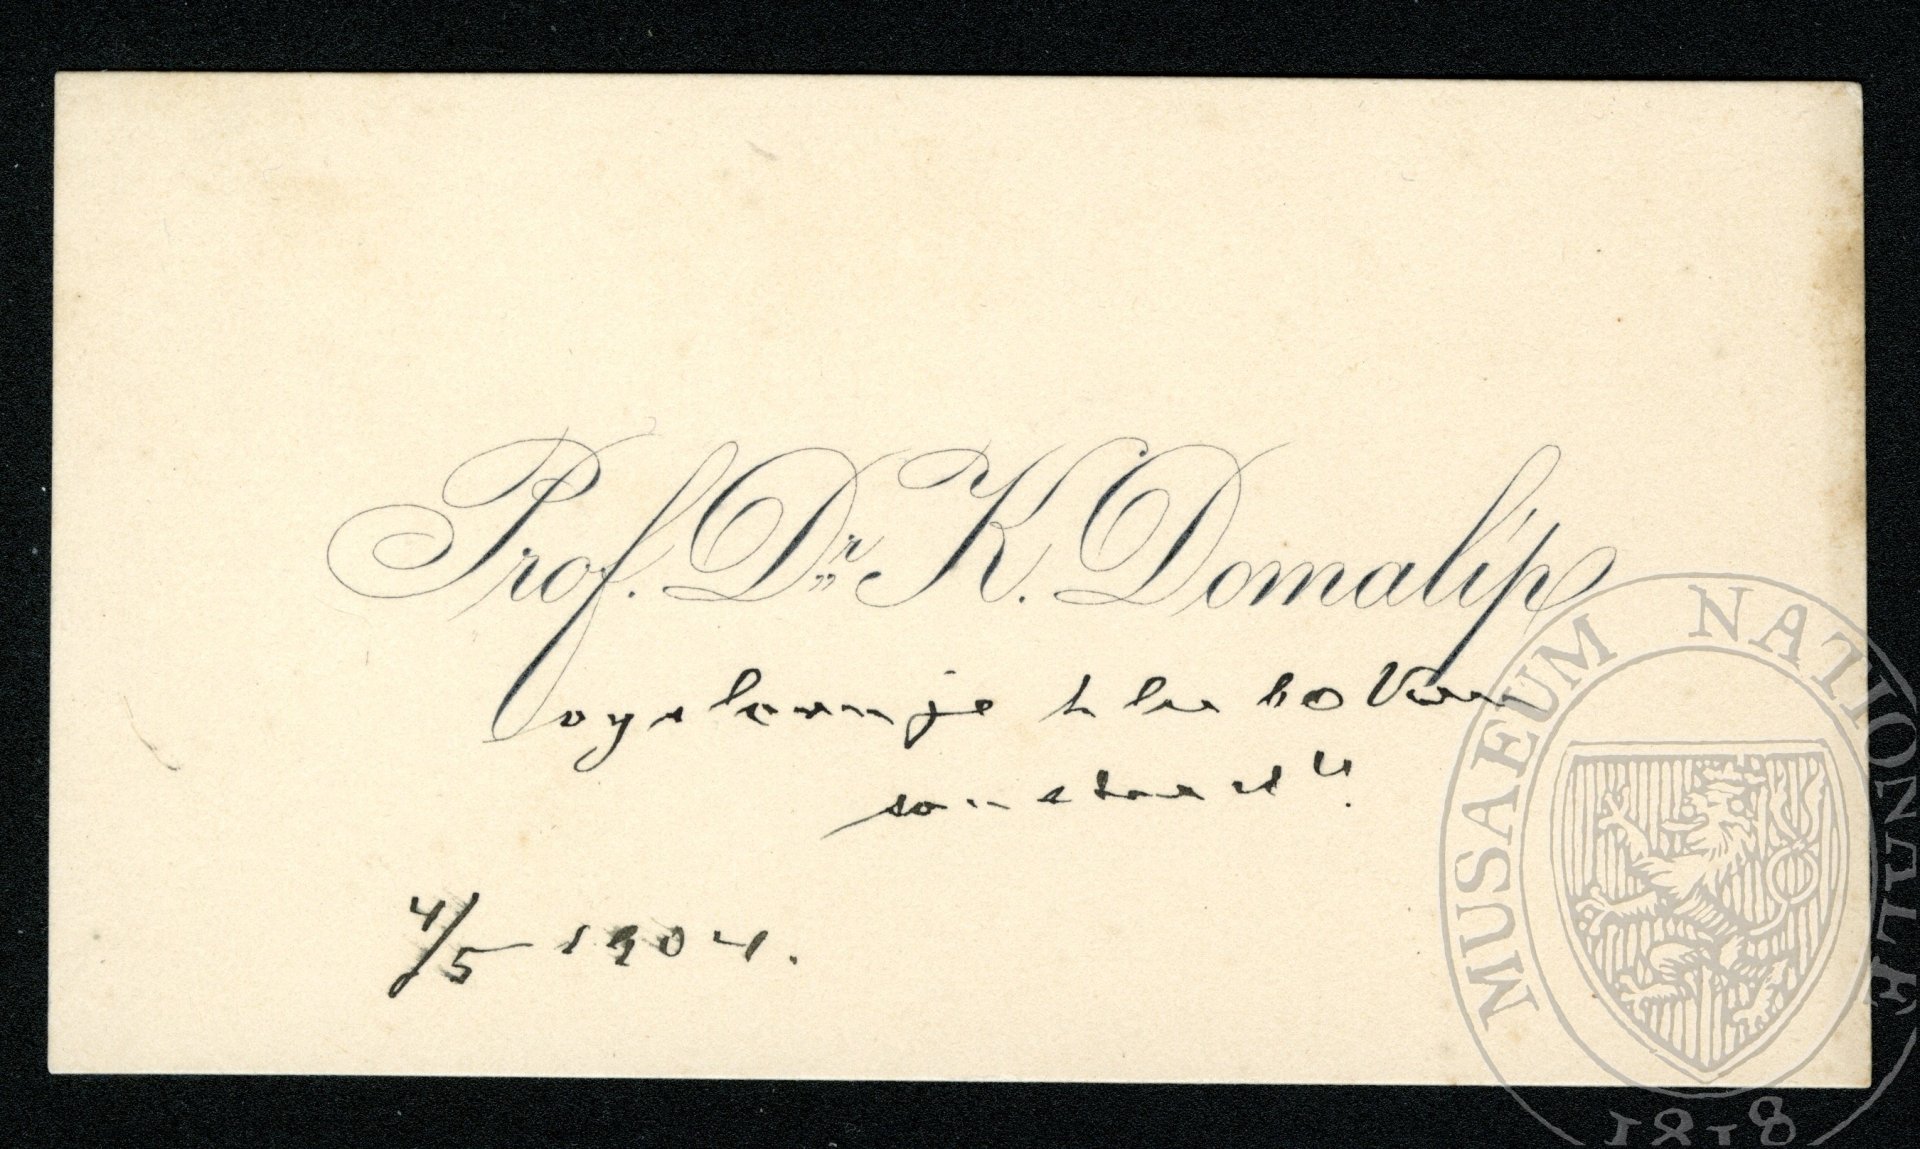 Prof. Dr. K. Domalíp
vyslovuje hlubokou
soustrast.
4/5 1904.
MUSAEUM NATIONALE
1818